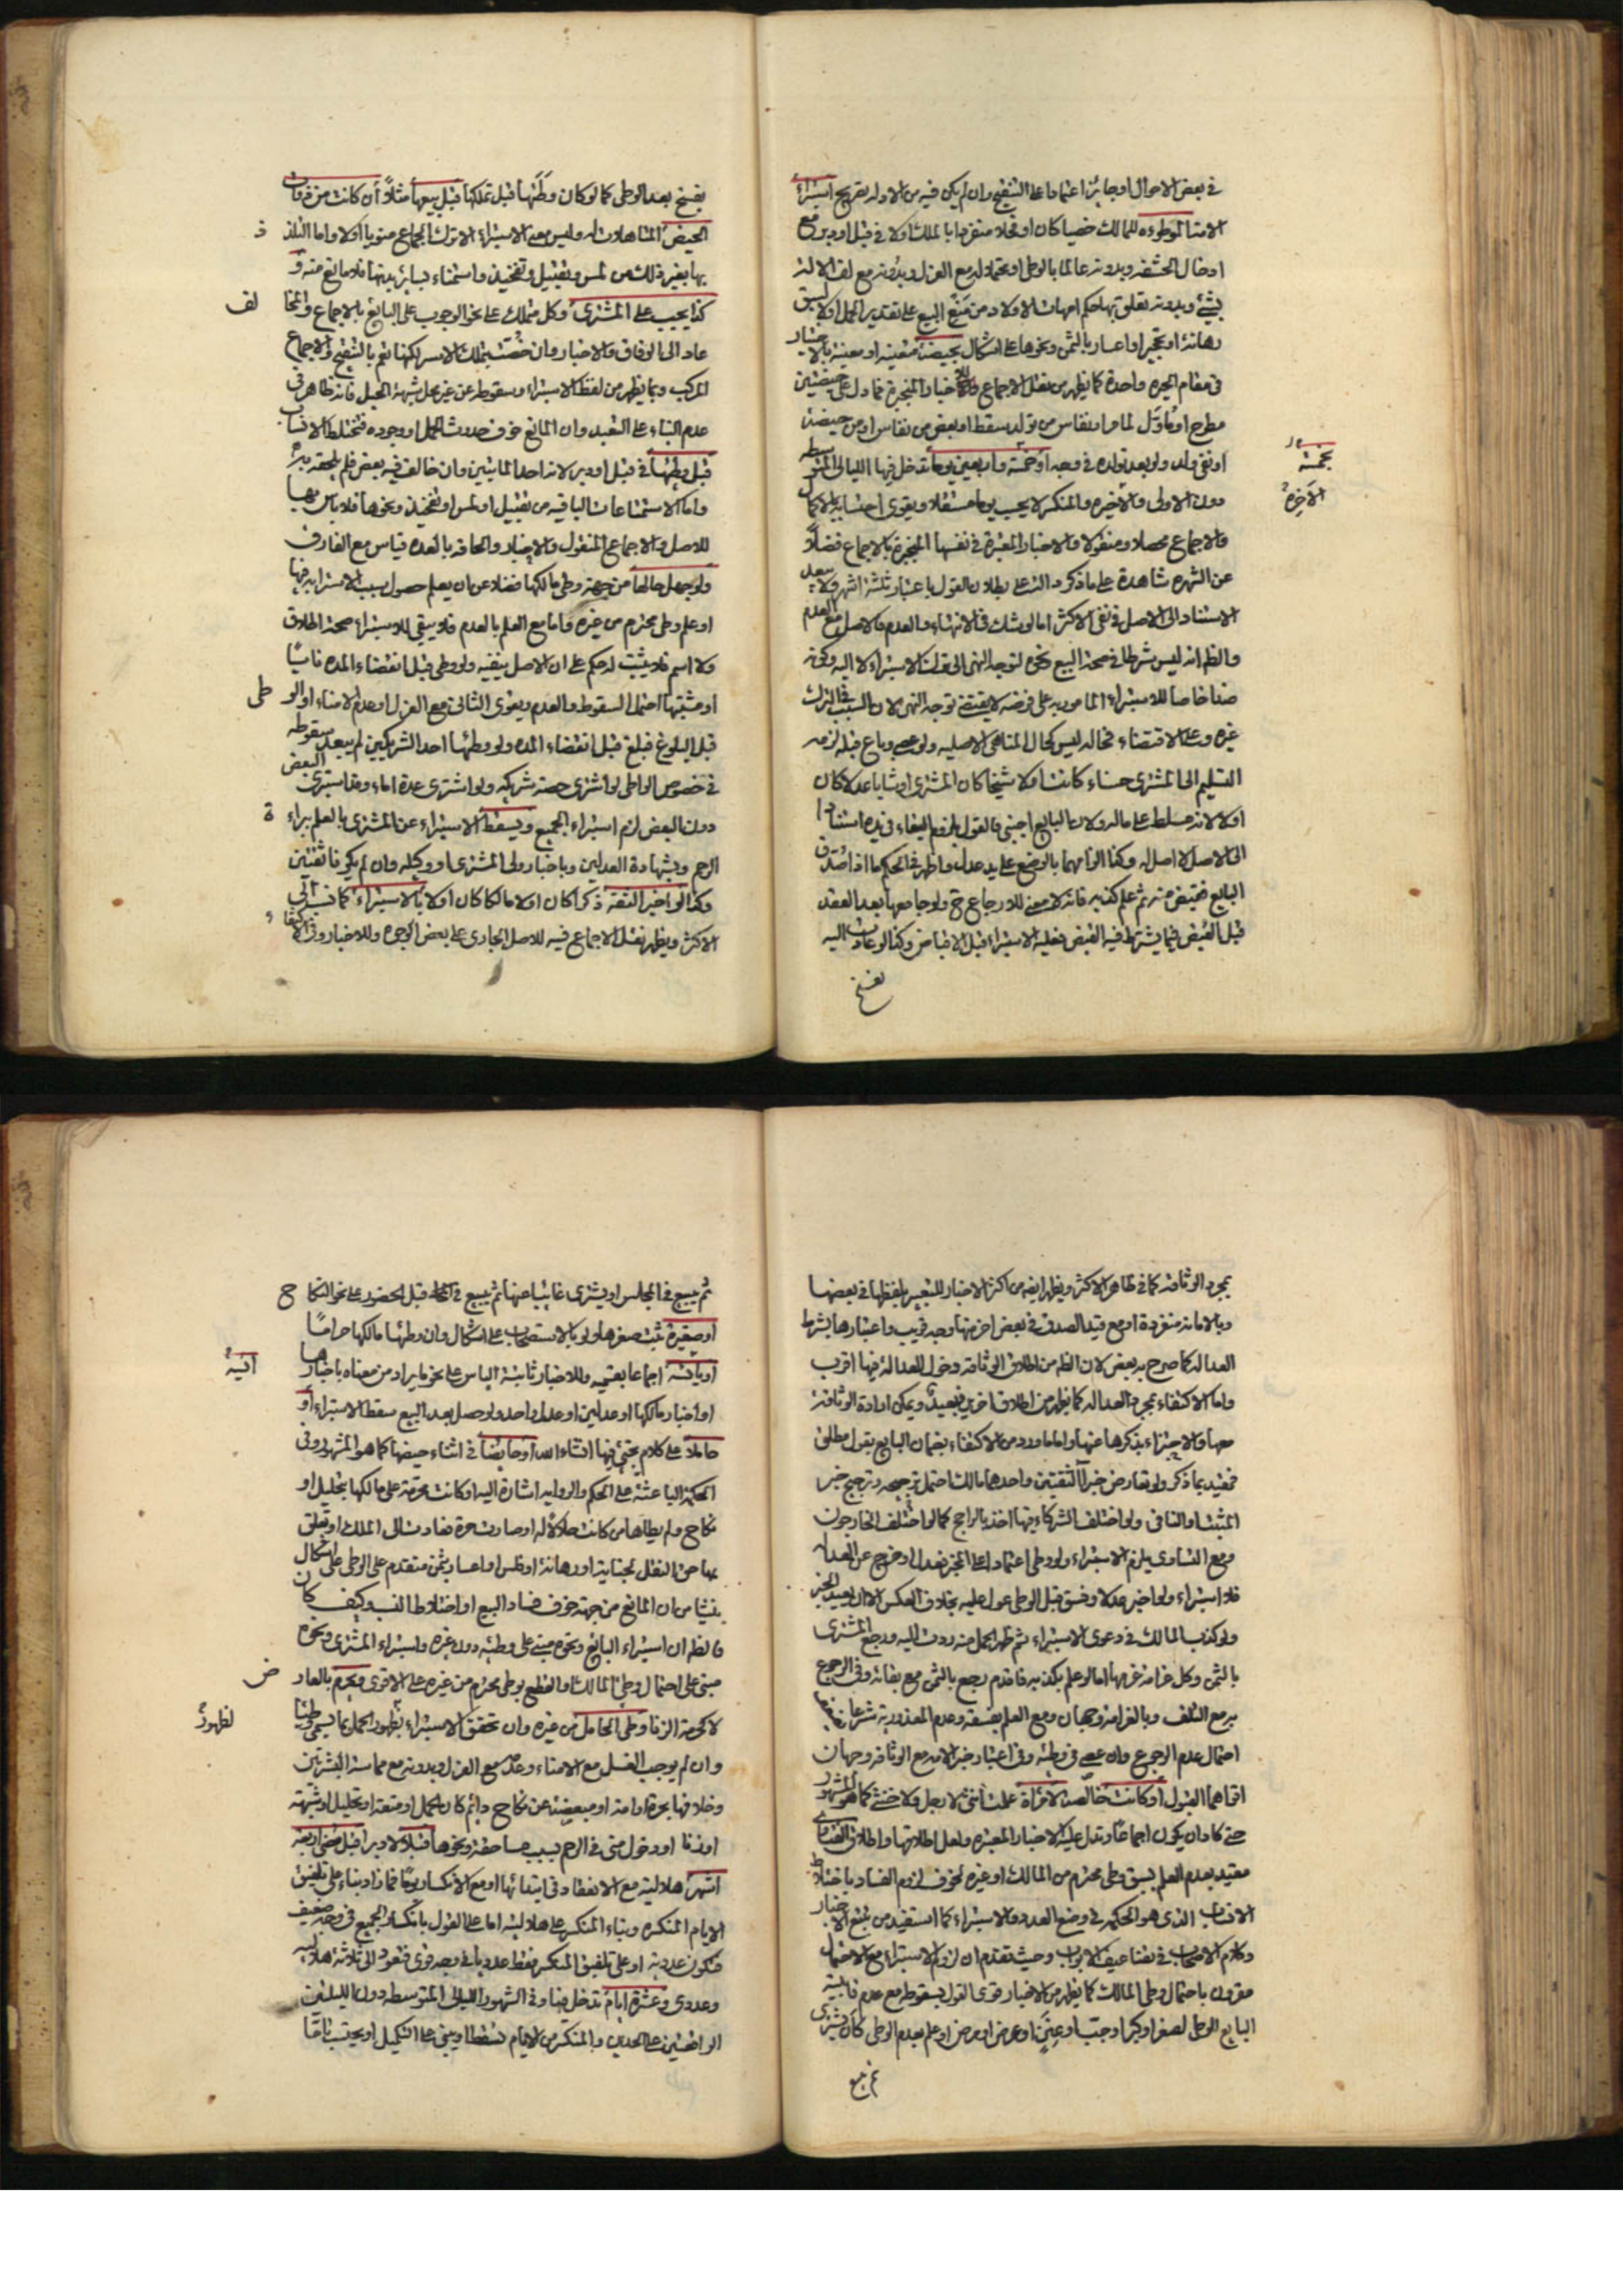 في بعض الاحوال اوجابرًا اعتمادا على التنقيح وان لم يكن فيه من الاوله بقريح استبراء
الامة الموطوءة للمالك خصيا كان او فحلا منفردا بالملك او لا في قبل او دبر مع
ادخال الحشفة وبدونه عالما بالوطي او بحكمه له مع العزل وبدونه مع لف الالة
بشيء وبدونه تعلق بها حكم امهات الاولاد من منع البيع على تقدير الحمل او لا لسبق
رهانة او تحجير او اعسار بالثمن ونحوها على اشكال بحيضة متعينة او معينة بالاختيار
في مقام الحيرة واحدة كما يظهر من نقل الاجماع والاخبار المنجبرة فما دل على حيضتين
مطرح او مأول لما مر او نفاس من تولد سقط او بعض من نفاس او من حيضة
او نفي ولد ولو بعد تولده في وجه او خمسة واربعين يوما تدخل فيها الليالي المتوسطة
بخمسة
دون الاولى والاخيرة والمنكسر لا يحسب يوما مستقلا ويقوى احتسابه بالاكمال
الاخيرة
والاجماع محصلا ومنقولا والاخبار المعتبرة في نفسها المنجبرة بالاجماع فضلًا
عن الشهرة شاهدة على ما ذكر دالة على بطلان القول باعتبار ثلثة اشهر ولا يبعد
الاستناد الى الاصل في نفي الاكثر اما لو شك في الانتهاء والعدم فالاصل مع العدم
والظاهر انه ليس شرطا في صحة البيع ونحوه لتوجه النهي الى ترك الاستبراء لا اليه وكونه
ضدا خاصا للاستبراء المامور به على فرضه لا يقتضي توجه النهي لان السبب في الترك
غيره وعلى الاقتضاء فحاله ليس كحال المناهي الاصلية ولو عصى وباع قبله لزمه
التسليم الى المشتري حسناء كانت او لا شيخا كان المشتري او شابا عدلا كان
او لا لانه مسلط على ماله ولان البايع اجنبي فالقول بلزوم البقاء في يده استنادا
الى الاصل لا اصل له وكذا الزامهما بالوضع على يد عدل واظهر في الحكم ما اذا صدق
البايع فقبض منه ثم علم كذبه فانه لا معنى للارجاع ح ولو جامعها بعد العقد
قبل القبض فيما يشترط فيه القبض فعليه الاستبراء قبل الاقباض وكذا لو عادت اليه
بفسخ
بفسخ بعد الوطي كما لو كان وطئها قبل تملكها قبل بيعها مثلًا ان كانت من ذوات
الحيض المتناهلات له وليس معنى الاستبراء الا ترك الجماع منويا اولا واما التلذذ
بها بغير ذلك من لمس وتقبيل وتفخيذ واستمناء بسائر بدنها فلا مانع منه و
كذا يجب على المشتري وكل متملك على نحو الوجوب على البائع بالاجماع والمخالف
عاد الى الوفاق والاخبار وان خصت بتملك الاسر لكنها تعم بالتنقيح والاجماع
المركب وبما يظهر من لفظ الاستبراء وسقوطه عن غير محل شبهة الحبل فانه ظاهر في
عدم البناء على التعبد وان المانع خوف حدوث الحمل او وجوده فتختلط الانساب
قبل وطئها في قبل او دبر لانه احد الماتيين وان خالف فيه بعض فلم يلحقه به
واما الاستمتاعات الباقية من تقبيل او لمس او تفخيذ ونحوها فلا باس بها
للاصل والاجماع المنقول والاخبار والحاقه بالعدة قياس مع الفارق
ولو جهل حالها من جهة وطي مالكها فضلا عن ان يعلم حصول سبب الاستبراء فيها
او علم وطي محترم من غيره واما مع العلم بالعدم فلا يبقى للاستبراء صحة اطلاق
ولا اسم فلا يثبت له حكم على ان الاصل ينفيه ولو وطي قبل انقضاء المدة ناسيًا
او مشتبها احتمل السقوط والعدم ويقوى الثاني مع العزل او عدم الامناء او الوطي
قبل البلوغ فبلغ قبل انقضاء المدة ولو وطئها احد الشريكين لم يبعد سقوطه
في خصوص الواطي لو اشترى حصة شريكه ولو اشترى عدة اماء وقد استبرى البعض
دون البعض لزم استبراء الجميع ويسقط الاستبراء عن المشتري بالعلم ببراءة
الرحم وبشهادة العدلين وباخبار ولي المشتري او وكيله وان لم يكونا ثقتين
وكذا لو اخبر الثقة ذكرا كان او لا مالكا كان او لا بالاستبراء كما نسب الى
الاكثر ويظهر نقل الاجماع فيه للاصل الجاري على بعض الوجوه وللاخبار وفي الاكتفاء
بمجرد الوثاقة كما في ظاهر الاكثر ويظهر ايضا من اكثر الاخبار للتعبير بلفظها في بعضها
وبالامانة منفردة او مع قيد الصدق في بعض اخر منها وجه قريب واعتبارها بشرط
العدالة كما صرح به بعض لان الظاهر من اطلاق الوثاقة دخول العدالة فيها اقرب
واما الاكتفاء بمجرد العدالة كما يظهر من اطلاق اخرين فبعيد ويمكن ارادة الوثاقة
معها والاجتزاء بذكرها عنها واما ما ورد من الاكتفاء بضمان البايع بقول مطلق
فمقيد بما ذكر ولو تعارض خبرا الثقتين واحدهما مالك احتمل ترجيحه وترجيح خبر
المثبت او النافي ولو اختلف الشركاء فيها اخذ بالراجح كما لو اختلف الخارجون
ومع التساوي يلزم الاستبراء ولو وطي اعتمادا على المخبر فعدل او خرج عن العدالة
فلا استبراء ولو اخبر عدلا وفسق قبل الوطي عول عليه بخلاف العكس الا ان يعيد الخبر
ولو كذب المالك في دعوى الاستبراء ثم ظهر الحمل منه ردت اليه ورجع المشتري
بالثمن وكل غرامة غرمها اما لو علم بكذبه فاقدم رجع بالثمن مع بقائه وفي الرجوع
به مع التلف وبالغرامة وجهان ومع العلم بفسقه وعدم المعذورية شرعا
احتمال عدم الرجوع وان عصى في وطئه وفي اعتبار خبر الامة مع الوثاقة وجهان
اقواهما القبول او كانت خالصة لامرأة علمت انثى لا رجل ولا خنثى كما هو المشهور
حتى كاد ان يكون اجماعًا وتدل عليه الاخبار المعتبرة ولعل اطلاقها واطلاق الفتاوى
مقيد بعدم العلم بسبق وطي محترم من المالك او غيره لخوف لزوم الفساد باختلاط
الانساب الذي هو الحكمة في وضع العدد والاستبراء كما استفيد من تتبع الاخبار
وكلام الاصحاب في تضاعيف الابواب وحيث تقدم ان لزوم الاستبراء مع الاحتمال
مقرون باحتمال وطي المالك كما يظهر من الاخبار قوي القول بسقوطه مع عدم قابلية
البايع الوطي لصغر او كبر او جب او عنن او عرض او مرض او علم بعدم الوطي كان يشتري
ثم يبيع
ثم يبيع في المجلس او يشتري غائبا عنها ثم يبيع في الحال قبل الحضور على نحو النكاح
او صغيرة ثبت صغرها ولو بالاستصحاب على اشكال وان وطئها مالكها حرامًا
او يائسة اجماعا بقسميه وللاخبار ثابتة الياس على نحو ما يراد من معناه باخبارها
ائسة
او اخبار مالكها او عدلين او عدل واحد ولو حصل بعد البيع سقط الاستبراء او
حاملا على كلام يجيء فيها انشاء الله او حايضا في اثناء حيضها كما هو المشهور وفي
الحكمة الباعثة على الحكم والرواية اشارة اليه او كانت محرمة على مالكها بتحليل او
نكاح ولم يطاها من كانت حلالًا له او صارت حرة فعادت الى الملك او تعلق
بها حق النقل لجناية او رهانة او فلس او اعسار بثمن متقدم على الوطي على اشكال
ينشا من ان المانع من جهة خوف فساد البيع او اختلاط النسب وكيف كان
فالظاهر ان استبراء البائع ونحوه مبني على وطئه دون غيره واستبراء المشتري ونحوه
مبني على احتمال وطي المالك او القطع بوطي محترم من غيره على الاقوى ويحرم بالعارض
لا كحرمة الزنا وطي الحامل من غيره وان تحقق الاستبراء بظهور الحمل بما يسمى وطيًا
لظهور
وان لم يوجب الغسل مع الامناء وعدمه مع العزل وبدونه مع مماسة البشرتين
وخلافها بحرة او امة او مبعضة عن نكاح دائم كان الحمل او متعة او تحليل او شبهة
او زنا او دخول مني في الرحم بسبب مساحقة ونحوها قبلًا لا دبرا قبل مضي اربعة
اشهر هلالية مع الانعقاد في ابتدائها او مع الانكسار يومًا فما زاد بناء على تلفيق
الايام المنكسرة وبناء المنكسر على هلاليته اما على القول بانكسار الجميع في وجه ضعيف
فتكون عددية او على تلفيق المنكسر فقط عدديا في وجه قوي فتعود الى ثلاثة هلالية
وعددي وعشرة ايام تدخل هنا وفي الشهور الليالي المتوسطة دون الليلتين
الواقعتين على الحدين والمنكسر من الايام تسقط او يبنى على التكميل او يحتسب تامًا